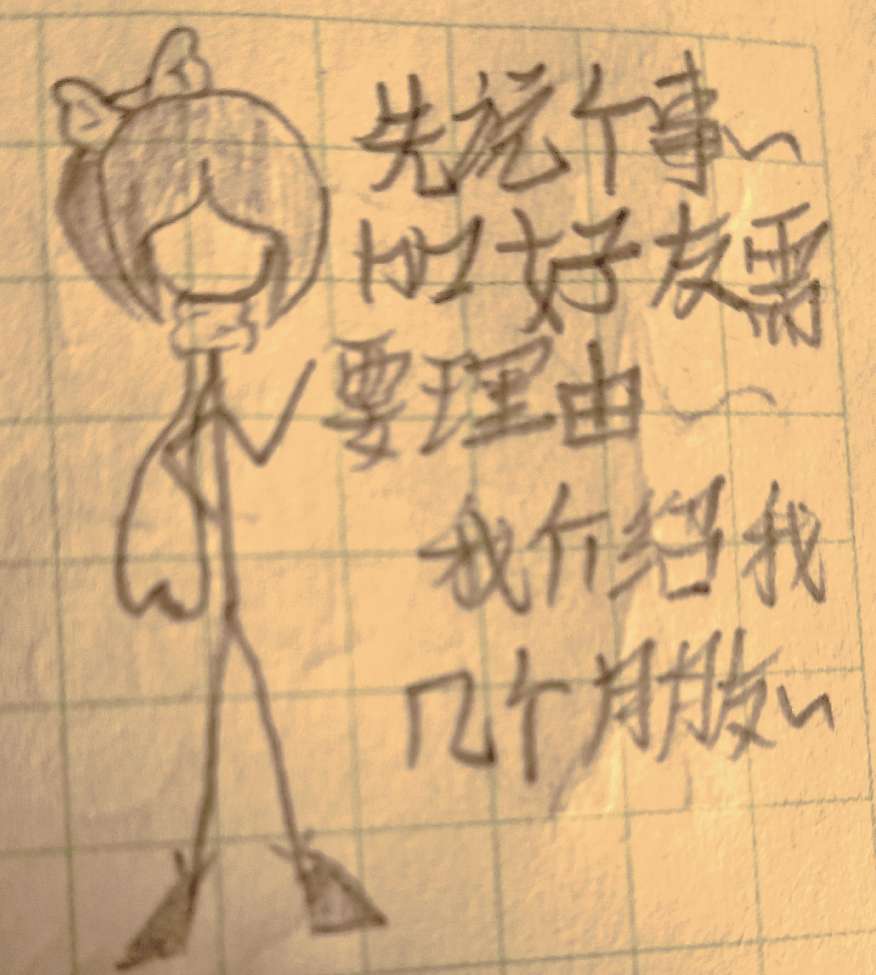 先说个事~
加好友需
要理由~
我介绍我
几个朋友~